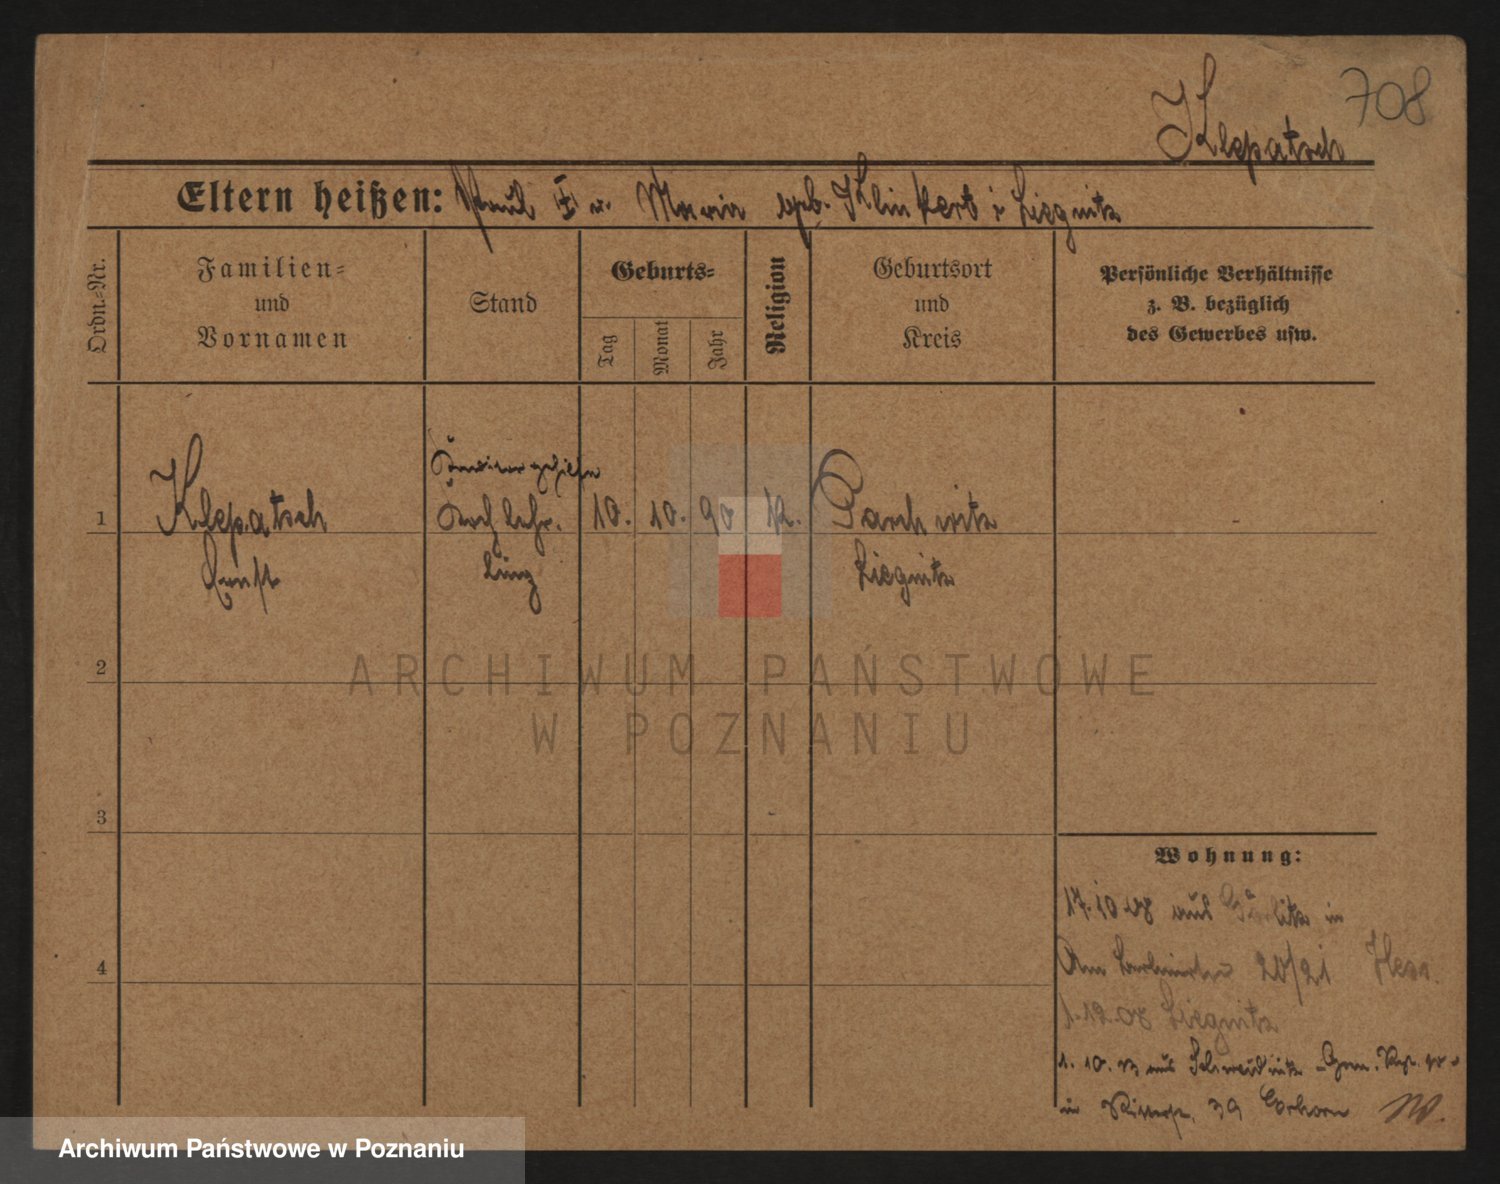 708
Klepatsch
Eltern heißen: Paul † u. Maria geb. Klinkert i. Liegnitz
Ordn.=Nr.
Familien=
und
Vornamen
Stand
Geburts=
Tag
Monat
Jahr
Religion
Geburtsort
und
Kreis
Persönliche Verhältnisse
z. B. bezüglich
des Gewerbes usw.
1
Klepatsch
Ernst
Kochlehr-
ling
10. 10. 90
Parchwitz
Liegnitz
2
3
4
Wohnung:
17.10.08 aus Görlitz in
Am Berlinertor 20/21
1.12.08 Liegnitz
1. 10. 13 aus Schweidnitz
in Ritterstr. 39
ARCHIWUM PAŃSTWOWE
W POZNANIU
Archiwum Państwowe w Poznaniu